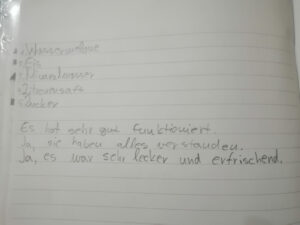 Wassermelone
Eis
Mineralwasser
Zitronensaft
Zucker
Es hat sehr gut funktioniert.
Ja, sie haben alles verstanden.
Ja, es war sehr lecker und erfrischend.